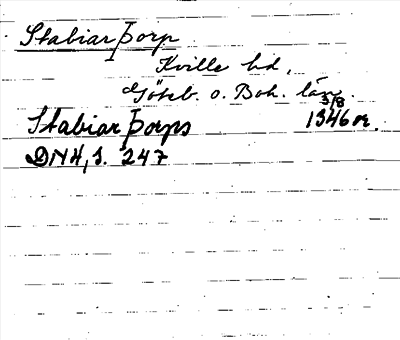 Stabiarþorp
Kville hd,
Göteb. o. Boh. län.
3/8
Stabiarþorps 1346 or.
DN 4, s. 247